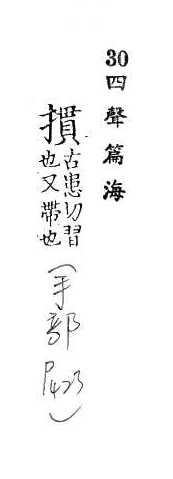 30四聲篇海
摜古患切習
也又帶也
(手部
P423)